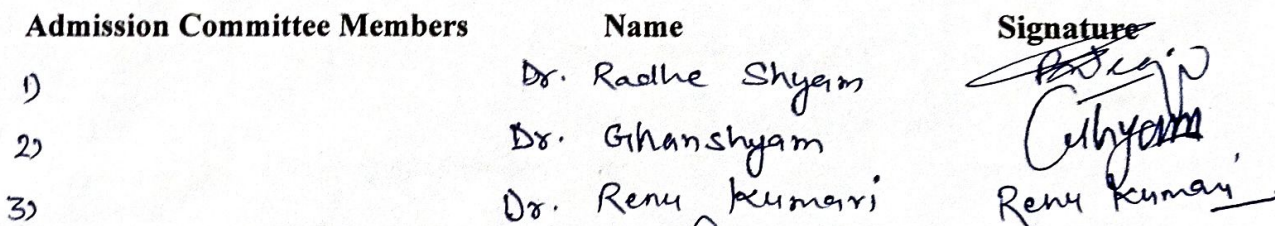 Admission Committee Members Name Signature
1) Dr. Radhe Shyam
2) Dr. Ghanshyam
3) Dr. Renu Kumari Renu Kumari